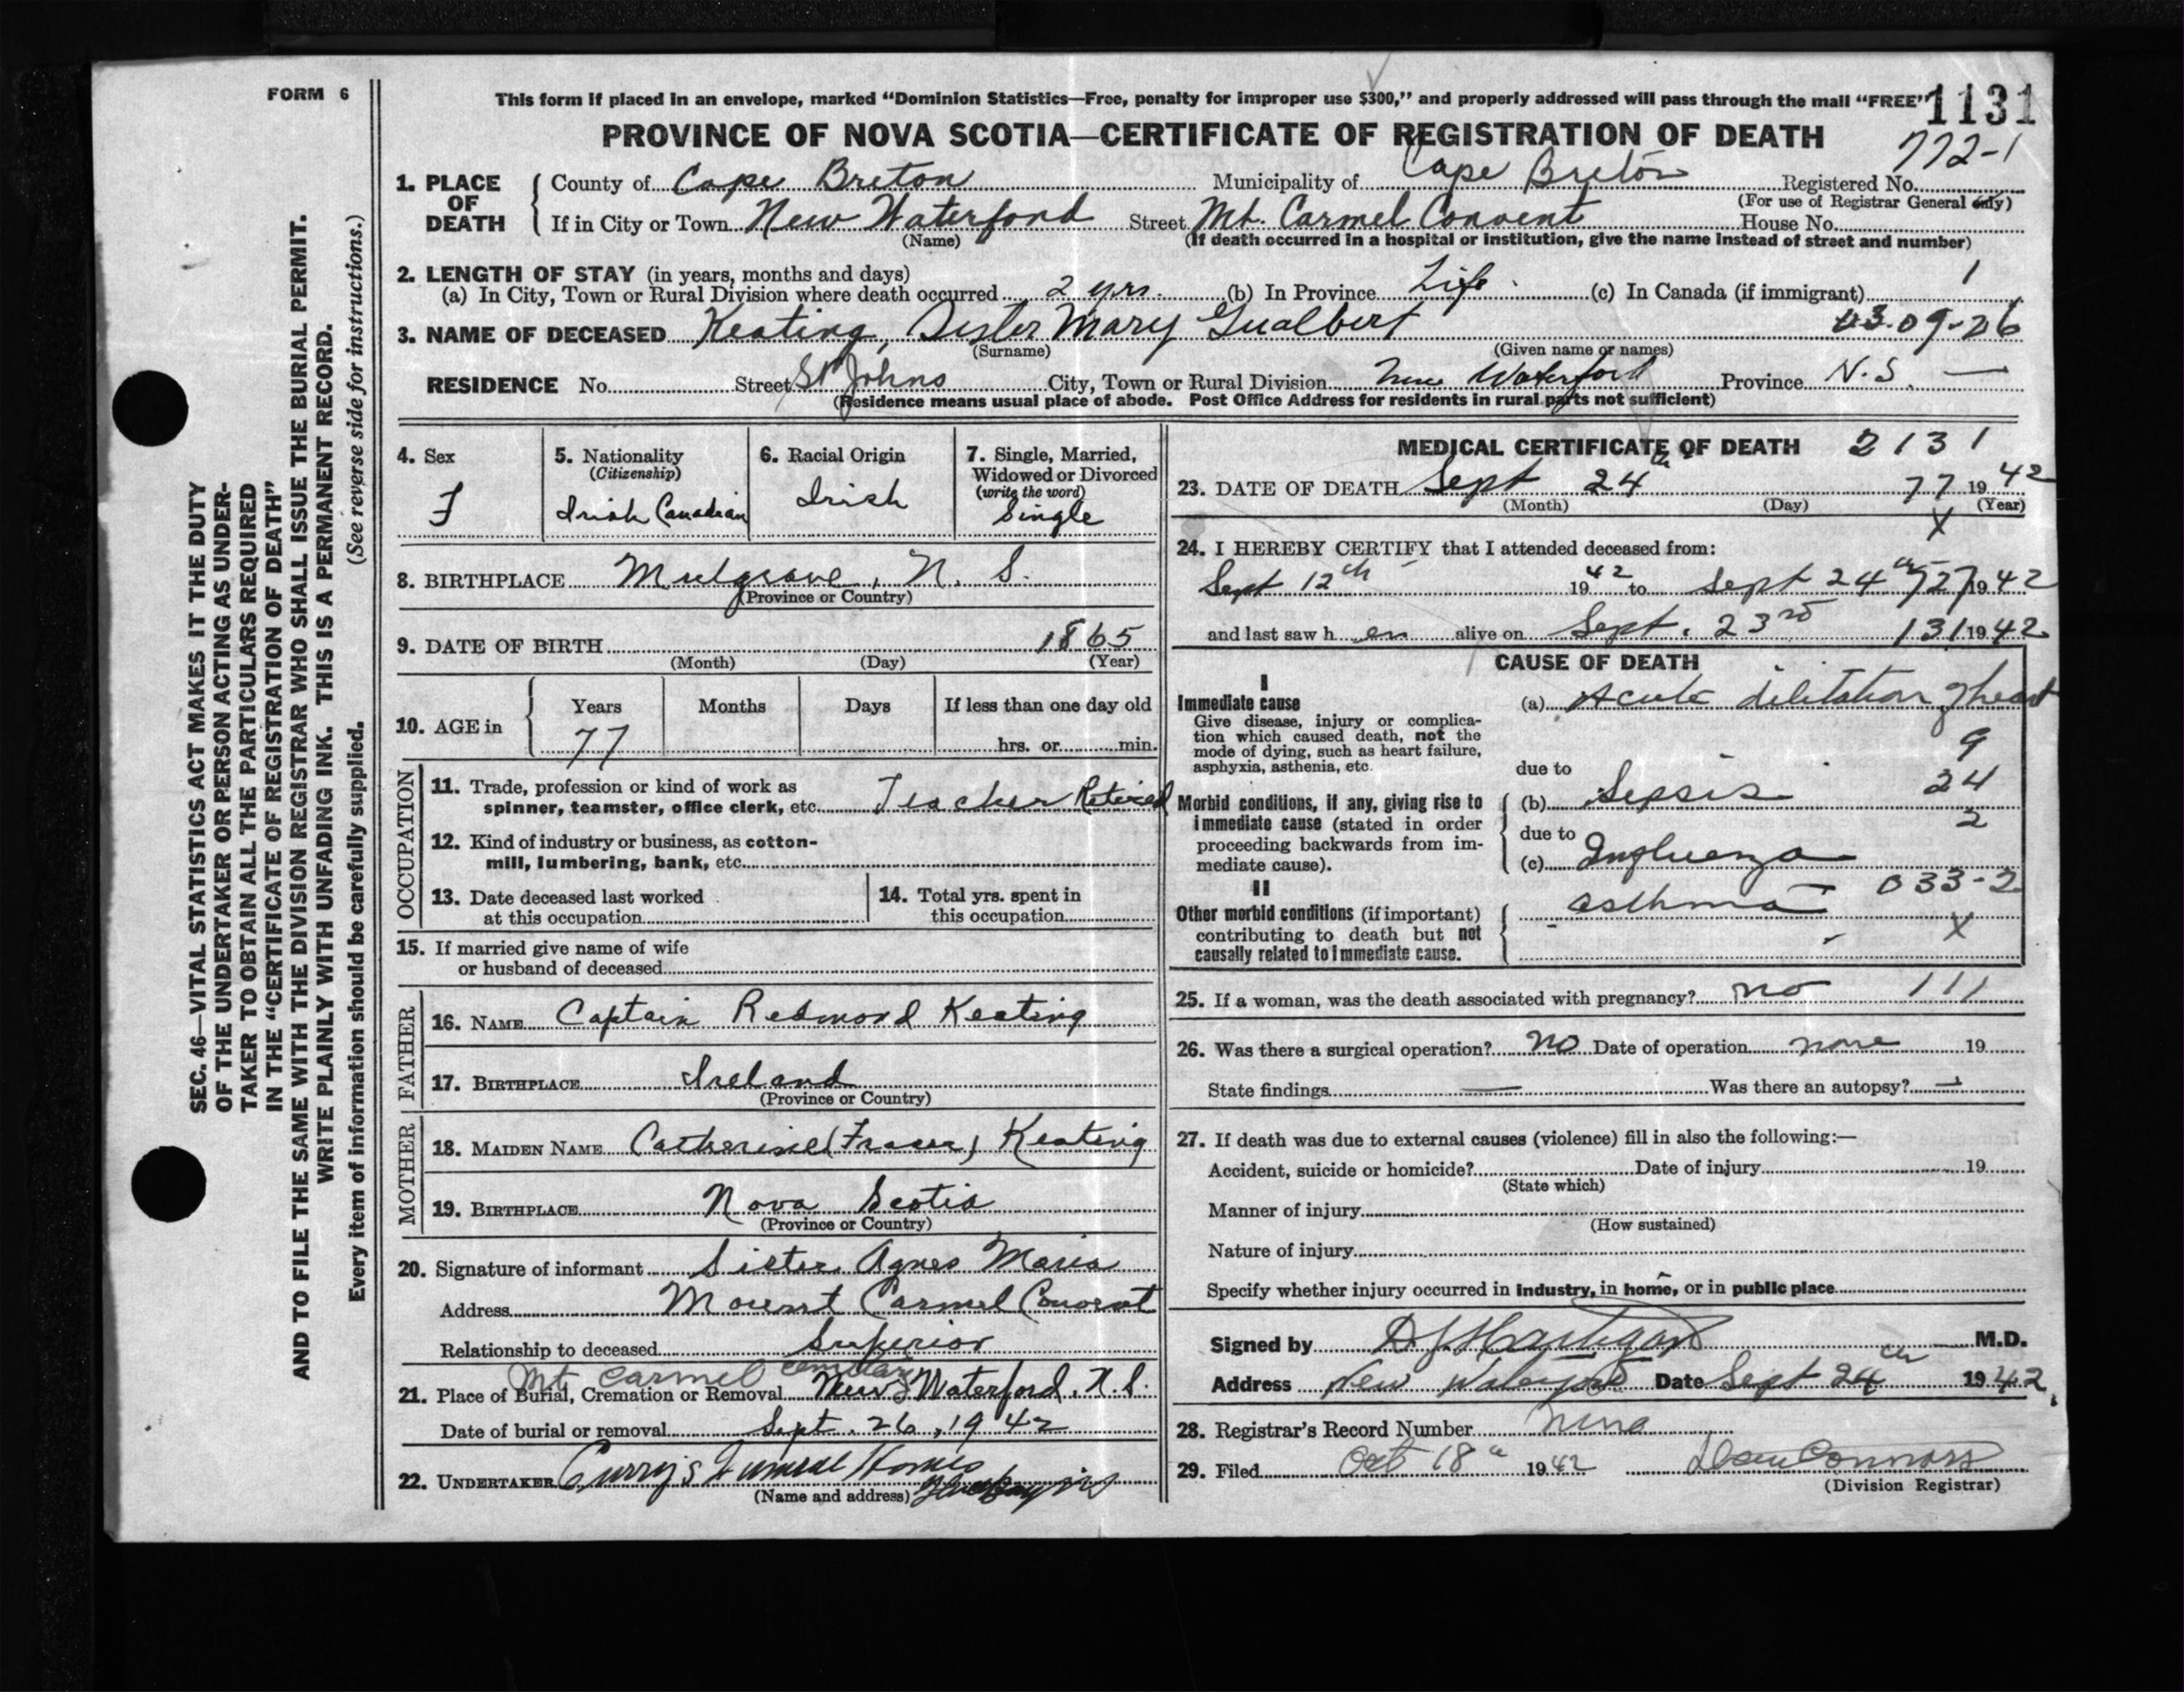 FORM 6
This form if placed in an envelope, marked "Dominion Statistics—Free, penalty for improper use $300," and properly addressed will pass through the mail "FREE"
1131
PROVINCE OF NOVA SCOTIA—CERTIFICATE OF REGISTRATION OF DEATH
772-1
1. PLACE OF DEATH
County of Cape Breton Municipality of Cape Breton Registered No.
(For use of Registrar General only)
If in City or Town New Waterford Street Mt. Carmel Convent House No.
(Name) (If death occurred in a hospital or institution, give the name instead of street and number)
2. LENGTH OF STAY (in years, months and days)
(a) In City, Town or Rural Division where death occurred 2 yrs. (b) In Province Life (c) In Canada (if immigrant) 1
3. NAME OF DECEASED Keating, Sister Mary Gualbert 03-09-26
(Surname) (Given name or names)
RESIDENCE No. Street St Johns City, Town or Rural Division New Waterford Province N.S. —
(Residence means usual place of abode. Post Office Address for residents in rural parts not sufficient)
4. Sex
F
5. Nationality
(Citizenship)
Irish Canadian
6. Racial Origin
Irish
7. Single, Married,
Widowed or Divorced
(write the word)
Single
8. BIRTHPLACE Mulgrave, N. S.
(Province or Country)
9. DATE OF BIRTH 1865
(Month) (Day) (Year)
10. AGE in
Years Months Days If less than one day old
77 hrs. or min.
OCCUPATION
11. Trade, profession or kind of work as
spinner, teamster, office clerk, etc. Teacher Retired
12. Kind of industry or business, as cotton-
mill, lumbering, bank, etc.
13. Date deceased last worked
at this occupation
14. Total yrs. spent in
this occupation
15. If married give name of wife
or husband of deceased
FATHER
16. NAME Captain Redmond Keating
17. BIRTHPLACE Ireland
(Province or Country)
MOTHER
18. MAIDEN NAME Catherine (Fraser) Keating
19. BIRTHPLACE Nova Scotia
(Province or Country)
20. Signature of informant Sister Agnes Maria
Address Mount Carmel Convent
Relationship to deceased Superior
Mt. Carmel Cemetary
21. Place of Burial, Cremation or Removal New Waterford, N.S.
Date of burial or removal Sept. 26, 1942
22. UNDERTAKER Curry's Funeral Homes
(Name and address) Glace Bay NS
MEDICAL CERTIFICATE OF DEATH 2131
23. DATE OF DEATH Sept 24th 77 1942
(Month) (Day) (Year)
X
24. I HEREBY CERTIFY that I attended deceased from:
Sept 12th 1942 to Sept 24th 1942
and last saw her alive on Sept. 23rd 131 1942
CAUSE OF DEATH
I
Immediate cause
Give disease, injury or complica-
tion which caused death, not the
mode of dying, such as heart failure,
asphyxia, asthenia, etc.
(a) Acute dilitation of heart
9
due to
Morbid conditions, if any, giving rise to
immediate cause (stated in order
proceeding backwards from im-
mediate cause).
(b) Sepsis 24
2
due to
(c) Influenza
033-2
II
Other morbid conditions (if important)
contributing to death but not
causally related to immediate cause.
asthma
X
25. If a woman, was the death associated with pregnancy? no 111
26. Was there a surgical operation? No Date of operation none 19
State findings — Was there an autopsy? —
27. If death was due to external causes (violence) fill in also the following:—
Accident, suicide or homicide? Date of injury 19
(State which)
Manner of injury
(How sustained)
Nature of injury
Specify whether injury occurred in industry, in home, or in public place
Signed by M.D.
Address New Waterford Date Sept 24th 1942
28. Registrar's Record Number
29. Filed Oct 18th 1942 Connors
(Division Registrar)
SEC. 46—VITAL STATISTICS ACT MAKES IT THE DUTY
OF THE UNDERTAKER OR PERSON ACTING AS UNDER-
TAKER TO OBTAIN ALL THE PARTICULARS REQUIRED
IN THE "CERTIFICATE OF REGISTRATION OF DEATH"
AND TO FILE THE SAME WITH THE DIVISION REGISTRAR WHO SHALL ISSUE THE BURIAL PERMIT.
WRITE PLAINLY WITH UNFADING INK. THIS IS A PERMANENT RECORD.
Every item of information should be carefully supplied. (See reverse side for instructions.)